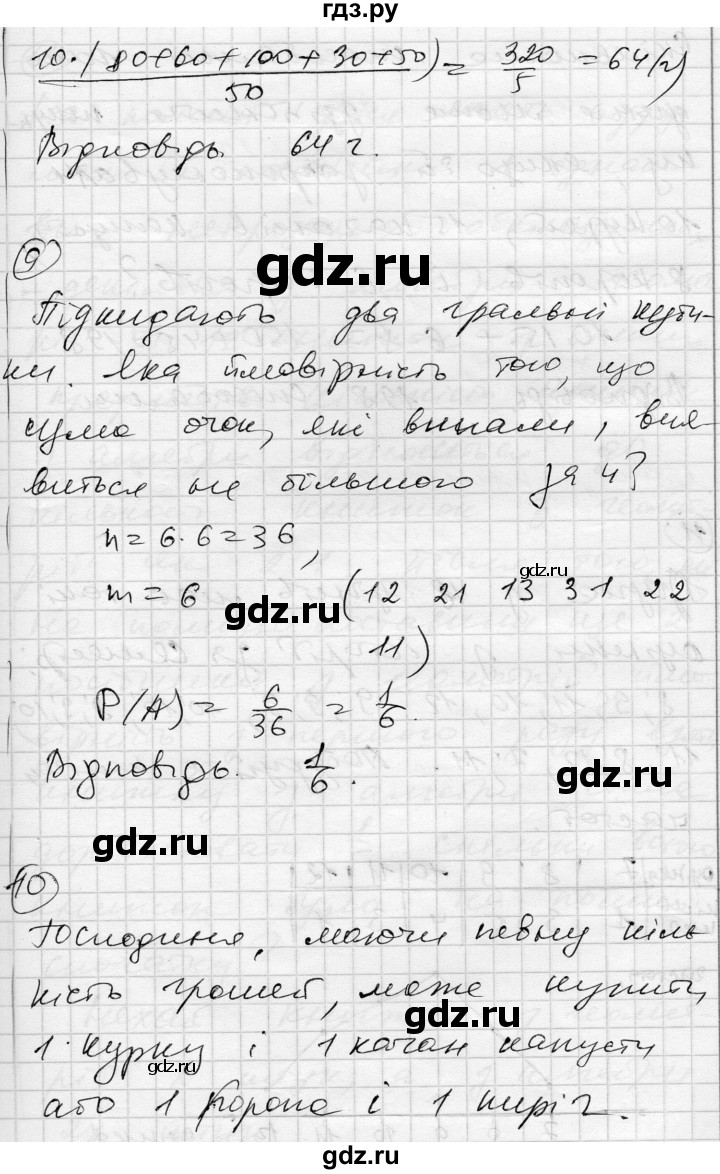 гдз.ру
10·(80+60+100+30+50)/50 = 320/5 = 64(г)
Відповідь 64 г.
9
gdz.ru
Підкидають два гральні куби-
ки. Яка ймовірність того, що
сума очок, які випали, вия-
виться не більшою за 4?
n = 6·6 = 36,
gdz.ru
m = 6 (12 21 13 31 22
gdz.ru
11)
P(A) = 6/36 = 1/6.
Відповідь. 1/6.
gdz.ru
gdz.ru
10
Господиня, маючи певну кіль
кість грошей, може купити,
gdz.ru
1 курку і 1 качан капусти
gdz.ru
або 1 коропа і 1 пиріг.